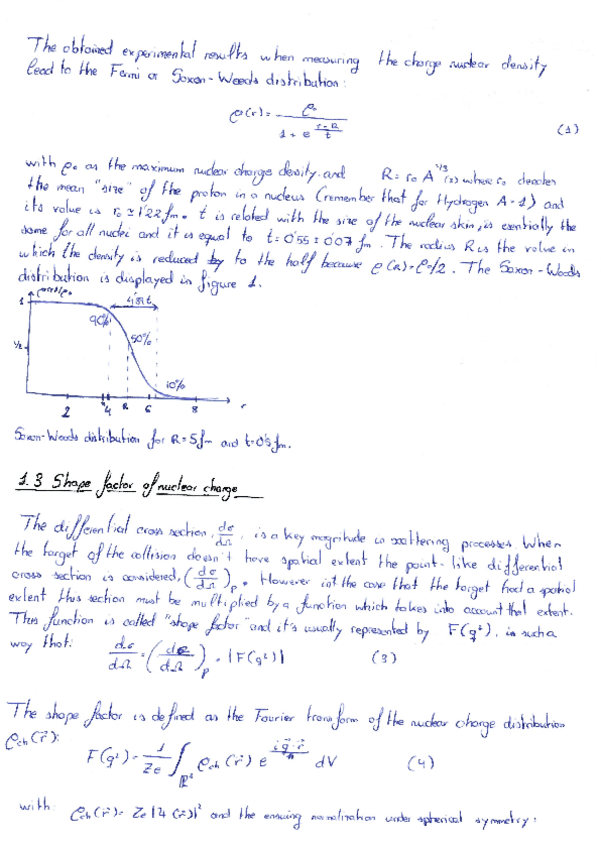 The obtained experimental results when measuring the charge nuclear density
lead to the Fermi or Saxon-Woods distribution:
ρ(r) = ρ₀ / (1 + e^((r-R)/t)) (1)
with ρ₀ as the maximum nuclear charge density. and R = r₀ A^(1/3) (2) where r₀ denotes
the mean "size" of the proton in a nucleus (remember that for Hydrogen A=1) and
its value is r₀ ≃ 1'22 fm. t is related with the size of the nuclear skin, is esentially the
same for all nuclei and it is equal to t = 0'55 ± 0'07 fm. The radius R is the value in
which the density is reduced to the half because ρ(R) = ρ₀/2. The Saxon-Woods
distribution is displayed in figure 1.
1
90%
1/2
50%
10%
2 4 R 6 8 r
Saxon-Woods distribution for R = 5 fm and t = 0'5 fm.
1.3 Shape factor of nuclear charge
The differential cross section, dσ/dΩ, is a key magnitude in scattering processes. When
the target of the collision doesn't have spatial extent the point-like differential
cross section is considered, (dσ/dΩ)p. However in the case that the target had a spatial
extent this section must be multiplied by a function which takes into account that extent.
This function is called "shape factor" and it's usually represented by F(q²), in such a
way that: dσ/dΩ = (dσ/dΩ)p · |F(q²)| (3)
The shape factor is defined as the Fourier transform of the nuclear charge distribution
ρch(r⃗):
F(q²) = 1/Ze ∫ ρch(r⃗) e^(i q⃗·r⃗/ħ) dV (4)
with: ρch(r⃗) = Ze |ψ(r⃗)|² and the ensuing normalization under spherical symmetry: